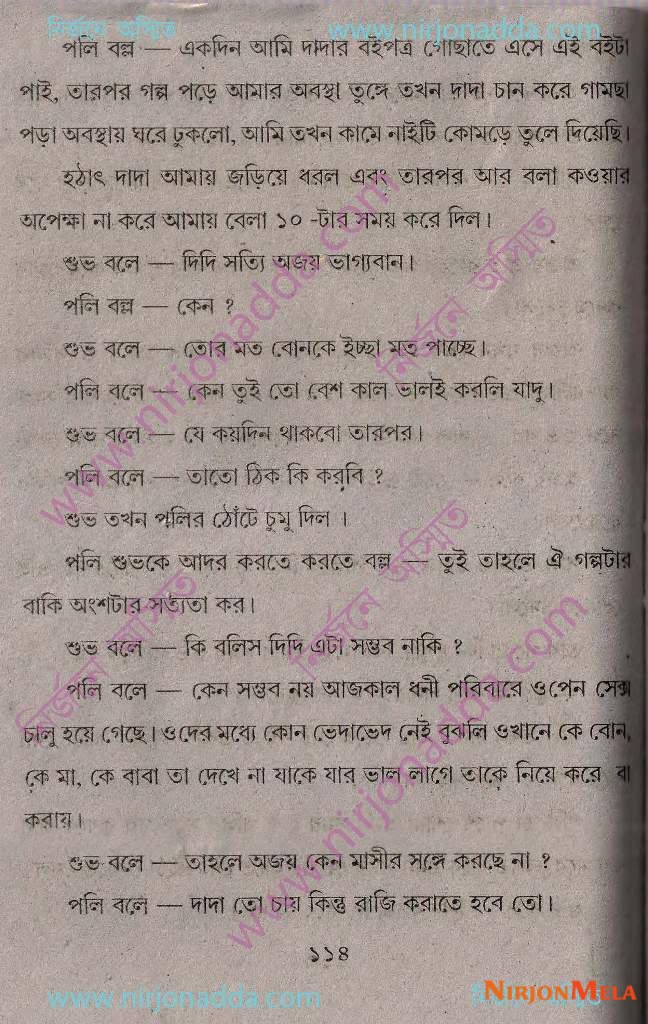 নির্জনে অস্মিত www.nirjonadda.com
পলি বল্ল — একদিন আমি দাদার বইপত্র গোছাতে এসে এই বইটা
পাই, তারপর গল্প পড়ে আমার অবস্থা তুঙ্গে তখন দাদা চান করে গামছা
পড়া অবস্থায় ঘরে ঢুকলো, আমি তখন কামে নাইটি কোমড়ে তুলে দিয়েছি।
হঠাৎ দাদা আমায় জড়িয়ে ধরল এবং তারপর আর বলা কওয়ার
অপেক্ষা না করে আমায় বেলা ১০ -টার সময় করে দিল।
শুভ বলে — দিদি সত্যি অজয় ভাগ্যবান।
পলি বল্ল — কেন ?
শুভ বলে — তোর মত বোনকে ইচ্ছা মত পাচ্ছে।
পলি বলে — কেন তুই তো বেশ কাল ভালই করলি যাদু।
শুভ বলে — যে কয়দিন থাকবো তারপর।
পলি বলে — তাতো ঠিক কি করবি ?
শুভ তখন পলির ঠোঁটে চুমু দিল ।
পলি শুভকে আদর করতে করতে বল্ল — তুই তাহলে ঐ গল্পটার
বাকি অংশটার সত্যতা কর।
শুভ বলে — কি বলিস দিদি এটা সম্ভব নাকি ?
পলি বলে — কেন সম্ভব নয় আজকাল ধনী পরিবারে ওপেন সেক্স
চালু হয়ে গেছে। ওদের মধ্যে কোন ভেদাভেদ নেই বুঝলি ওখানে কে বোন,
কে মা, কে বাবা তা দেখে না যাকে যার ভাল লাগে তাকে নিয়ে করে বা
করায়।
শুভ বলে — তাহলে অজয় কেন মাসীর সঙ্গে করছে না ?
পলি বলে — দাদা তো চায় কিন্তু রাজি করাতে হবে তো।
১১৪
www.nirjonadda.com
NIRJONMELA
www.nirjonadda.com
নির্জনে অস্মিত
নির্জনে অস্মিত
নির্জনে অস্মিত
www.nirjonadda.com